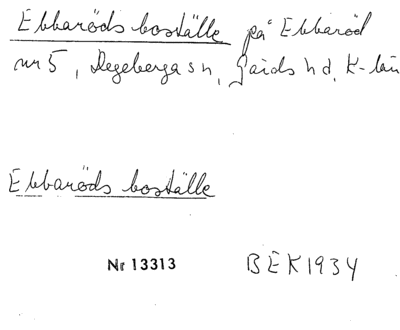 Ebbaröds boställe på Ebbaröd
nr 5, Degeberga sn, Gärds hd, K-län
Ebbaröds boställe
Nr 13313 BEK1934